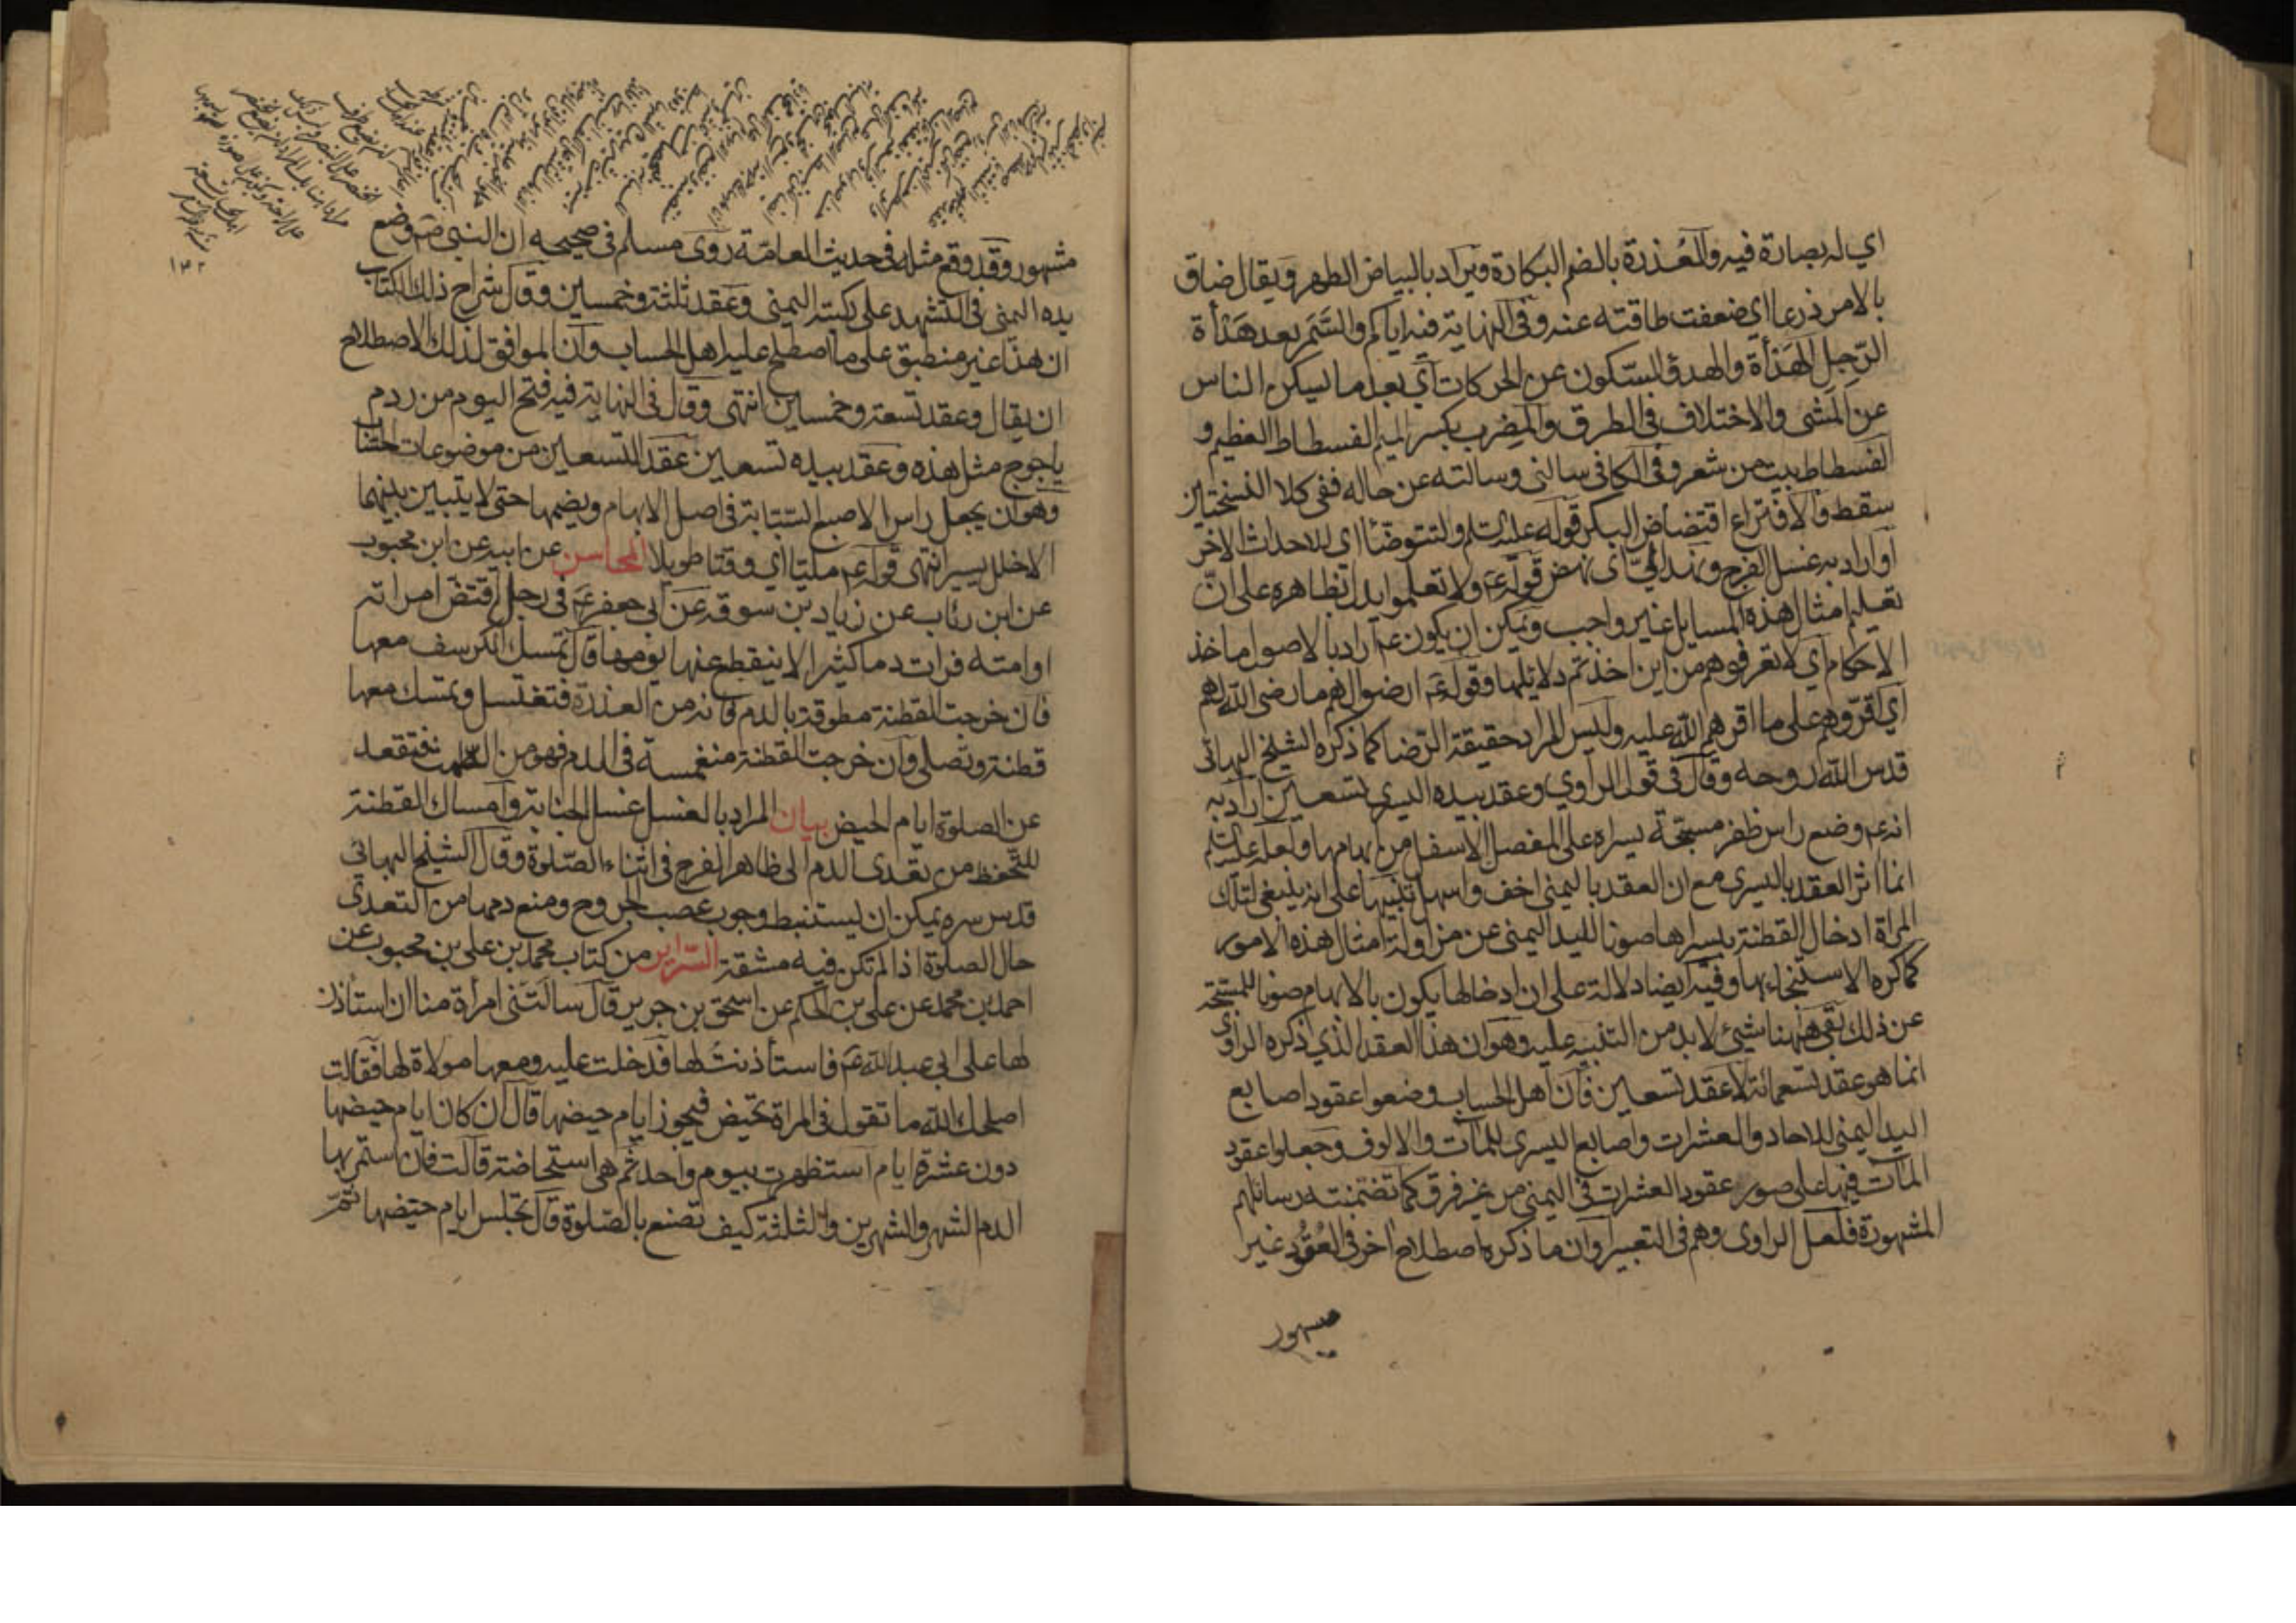 اي له بصارة فيه والعُذرة بالضم البكارة ويراد بالبياض الطهر ويقال ضاق
بالامر ذرعا اي ضعفت طاقته عنه وفى النهاية فيه اياكم والسَّمَر بعد هَدْأة
الرّجِل الهَدْأة والهدؤ السّكون عن الحركات اي بعد ما يسكن الناس
عن المشى والاختلاف فى الطرق والمِضرب بكسر الميم الفسطاط العظيم و
الفسطاط بيت من شعر وفى الكافى سالنى وسالته عن حاله ففى كلا النسختين
سقط والافتراع اقتضاض البكر قوله عليه السلم ولتتوضّأ اي للاحداث الاخر
او اراد به غسل الفرج ونهد اليّ اى نهض قوله عم ولا تعلموا يدل بظاهره على انّ
تعليم امثال هذه المسايل غير واجب ويمكن ان يكون عم اراد بالاصول ماخذ
الاحكام اي لا تعرفوهم من اين اخذتم دلائلها وقوله عم ارضوا لهم ما رضى الله لهم
اي اقرّوهم على ما اقرهم الله عليه وليس المراد حقيقة الرّضا كما ذكره الشيخ البهائى
قدس الله روحه وقال فى قول الراوي وعقد بيده اليسرى تسعين اراد به
انه عم وضع راس ظفر مسبّحة يسراه على المفصل الاسفل من ابهامها ولعله عليه السلم
انما اثر العقد باليسرى مع ان العقد باليمنى اخف واسهل تنبيها على انه ينبغى لتلك
المراة ادخال القطنة بيسراها صونا لليد اليمنى عن مزاولة امثال هذه الامور
كما كره الاستنجاء بها وفيه ايضا دلالة على ان ادخالها يكون بالابهام صونا للمسبّحة
عن ذلك بقى ههنا شيئ لا بد من التنبيه عليه وهو ان هذا العقد الذي ذكره الراوى
انما هو عقد تسعمائة لا عقد تسعين فان اهل الحساب وضعوا عقود اصابع
اليد اليمنى للاحاد والعشرات واصابع اليسرى للمآت والالوف وجعلوا عقود
المآت فيها على صور عقود العشرات فى اليمنى من غير فرق كما تضمنته رسائلهم
المشهورة فلعل الراوى وهم فى التعبير او ان ما ذكره اصطلاح اخر فى العُقُود غير
مشهور
مشهور وقد وقع مثله فى حديث العامّة روى مسلم فى صحيحه ان النبى ص وضع
يده اليمنى فى التشهد على ركبته اليمنى وعقد ثلثة وخمسين وقال شراح ذلك الكتاب
ان هذا غير منطبق على ما اصطلح عليه اهل الحساب وان الموافق لذلك الاصطلاح
ان يقال وعقد تسعة وخمسين انتهى وقال فى النهاية فيه فتح اليوم من ردم
ياجوج مثل هذه وعقد بيده تسعين عقد التسعين من موضوعات الحسّاب
وهو ان يجعل راس الاصبع السّبّابة فى اصل الابهام ويضمها حتى لا يتبين بينهما
الا خلل يسير انتهى قوله عم مليّا اي وقتا طويلا المحاسن عن ابيه عن ابن محبوب
عن ابن رئاب عن زياد بن سوقه عن ابى جعفر عم فى رجل اقتضّ امراته
او امته فرات دما كثيرا لا ينقطع عنها يومها قال تمسك الكرسف معها
فان خرجت القطنة مطوقة بالدم فانه من العذرة فتغتسل وتمسك معها
قطنة وتصلى وان خرجت القطنة منغمسة فى الدم فهو من الطمث فتقعد
عن الصلوة ايام الحيض بيان المراد بالغسل غسل الجنابة وامساك القطنة
للتّحفظ من تعدى الدم الى ظاهر الفرج فى اثناء الصّلوة وقال الشيخ البهائى
قدس سره يمكن ان يستنبط وجوب عصب الجروح ومنع دمها من التعدى
حال الصلوة اذا لم تكن فيه مشقة السّراير من كتاب محمد بن على بن محبوب عن
احمد بن محمد عن على بن الحكم عن اسحق بن جرير قال سالَتْنى امرأة منا ان استأذن
لها على ابى عبد الله عم فاستأذنتُ لها فدخلت عليه ومعها مولاة لها فقالت
اصلحك الله ما تقول فى المراة تحيض فيجوز ايام حيضها قال ان كان ايام حيضها
دون عشرة ايام استظهرت بيوم واحد ثم هى استحاضة قالت فان استمر بها
الدم الشهر والشهرين والثلثة كيف تصنع بالصّلوة قال تجلس ايام حيضها ثم
۱۴۲